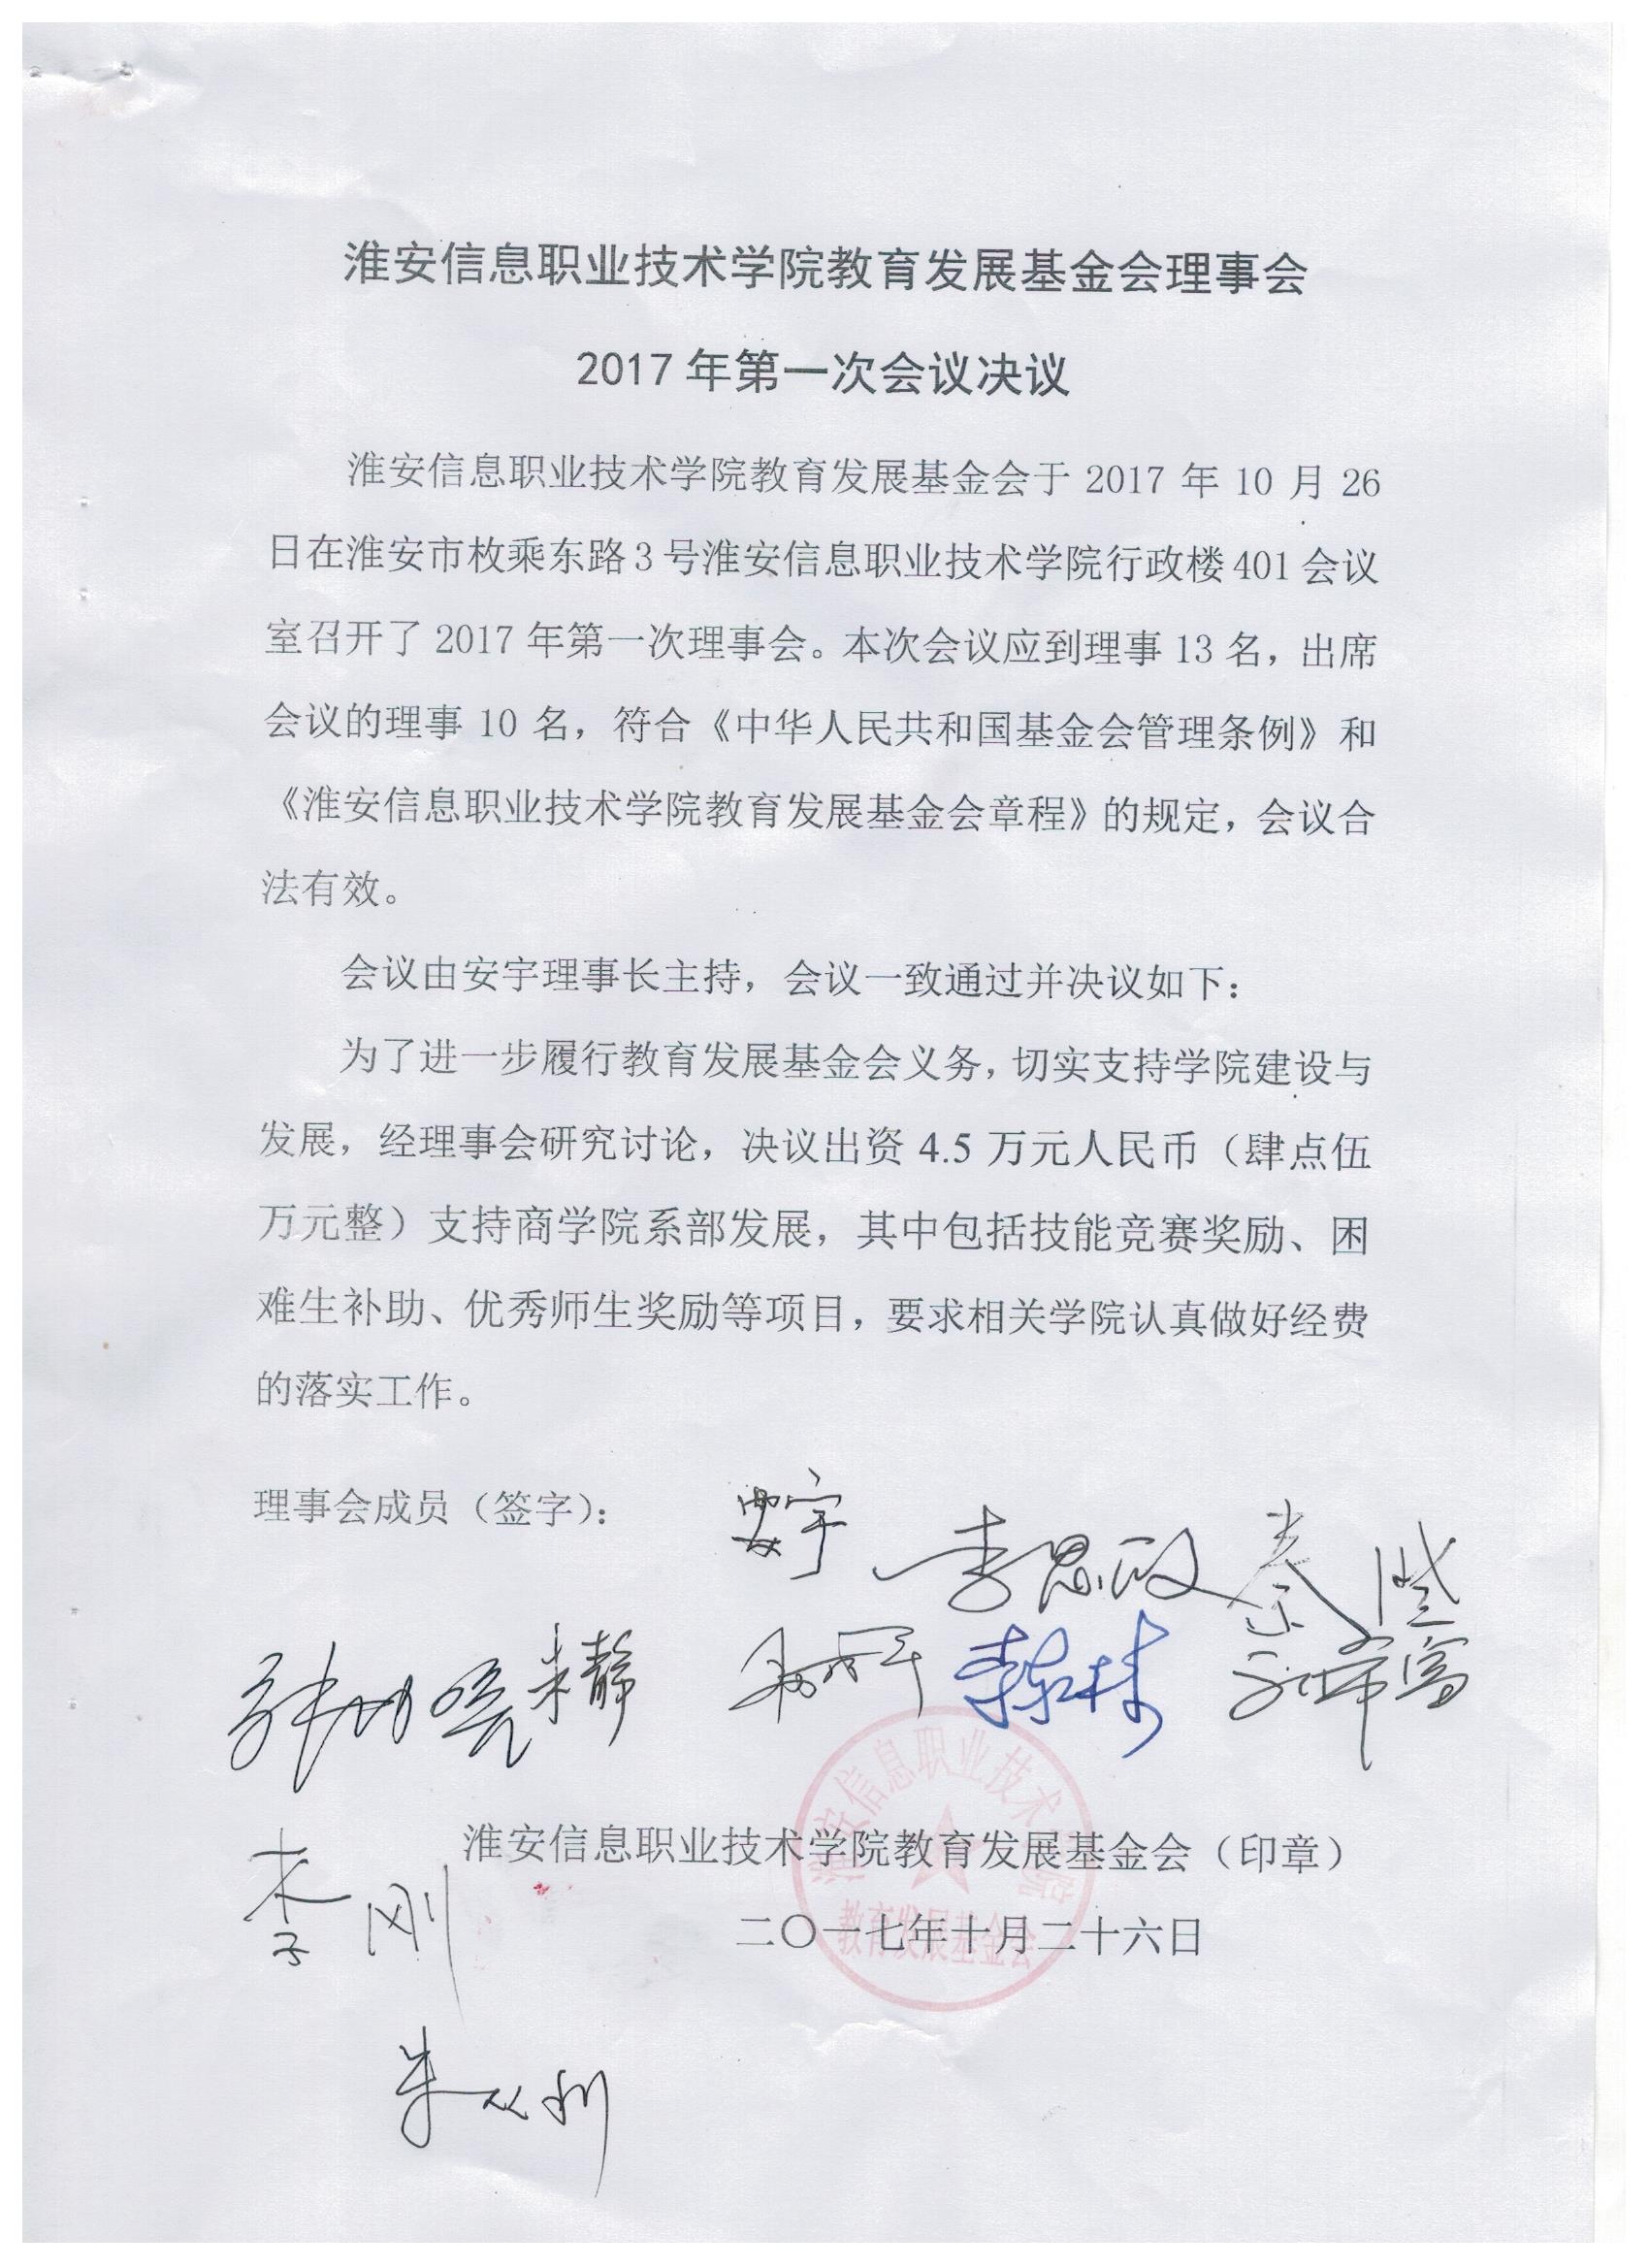 淮安信息职业技术学院教育发展基金会理事会
2017年第一次会议决议
淮安信息职业技术学院教育发展基金会于 2017 年 10 月 26
日在淮安市枚乘东路3号淮安信息职业技术学院行政楼401会议
室召开了 2017 年第一次理事会。本次会议应到理事 13 名，出席
会议的理事 10 名，符合《中华人民共和国基金会管理条例》和
《淮安信息职业技术学院教育发展基金会章程》的规定，会议合
法有效。
会议由安宇理事长主持，会议一致通过并决议如下：
为了进一步履行教育发展基金会义务，切实支持学院建设与
发展，经理事会研究讨论，决议出资 4.5 万元人民币（肆点伍
万元整）支持商学院系部发展，其中包括技能竞赛奖励、困
难生补助、优秀师生奖励等项目，要求相关学院认真做好经费
的落实工作。
理事会成员（签字）：
安宇 李思政 秦
朱静
淮安信息职业技术学院教育发展基金会（印章）
李刚
二〇一七年十月二十六日
淮安信息职业技术学院
教育发展基金会